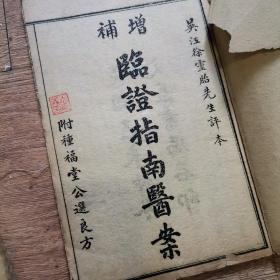 吳江徐靈胎先生評本
增補
臨證指南醫案
附種福堂公選良方